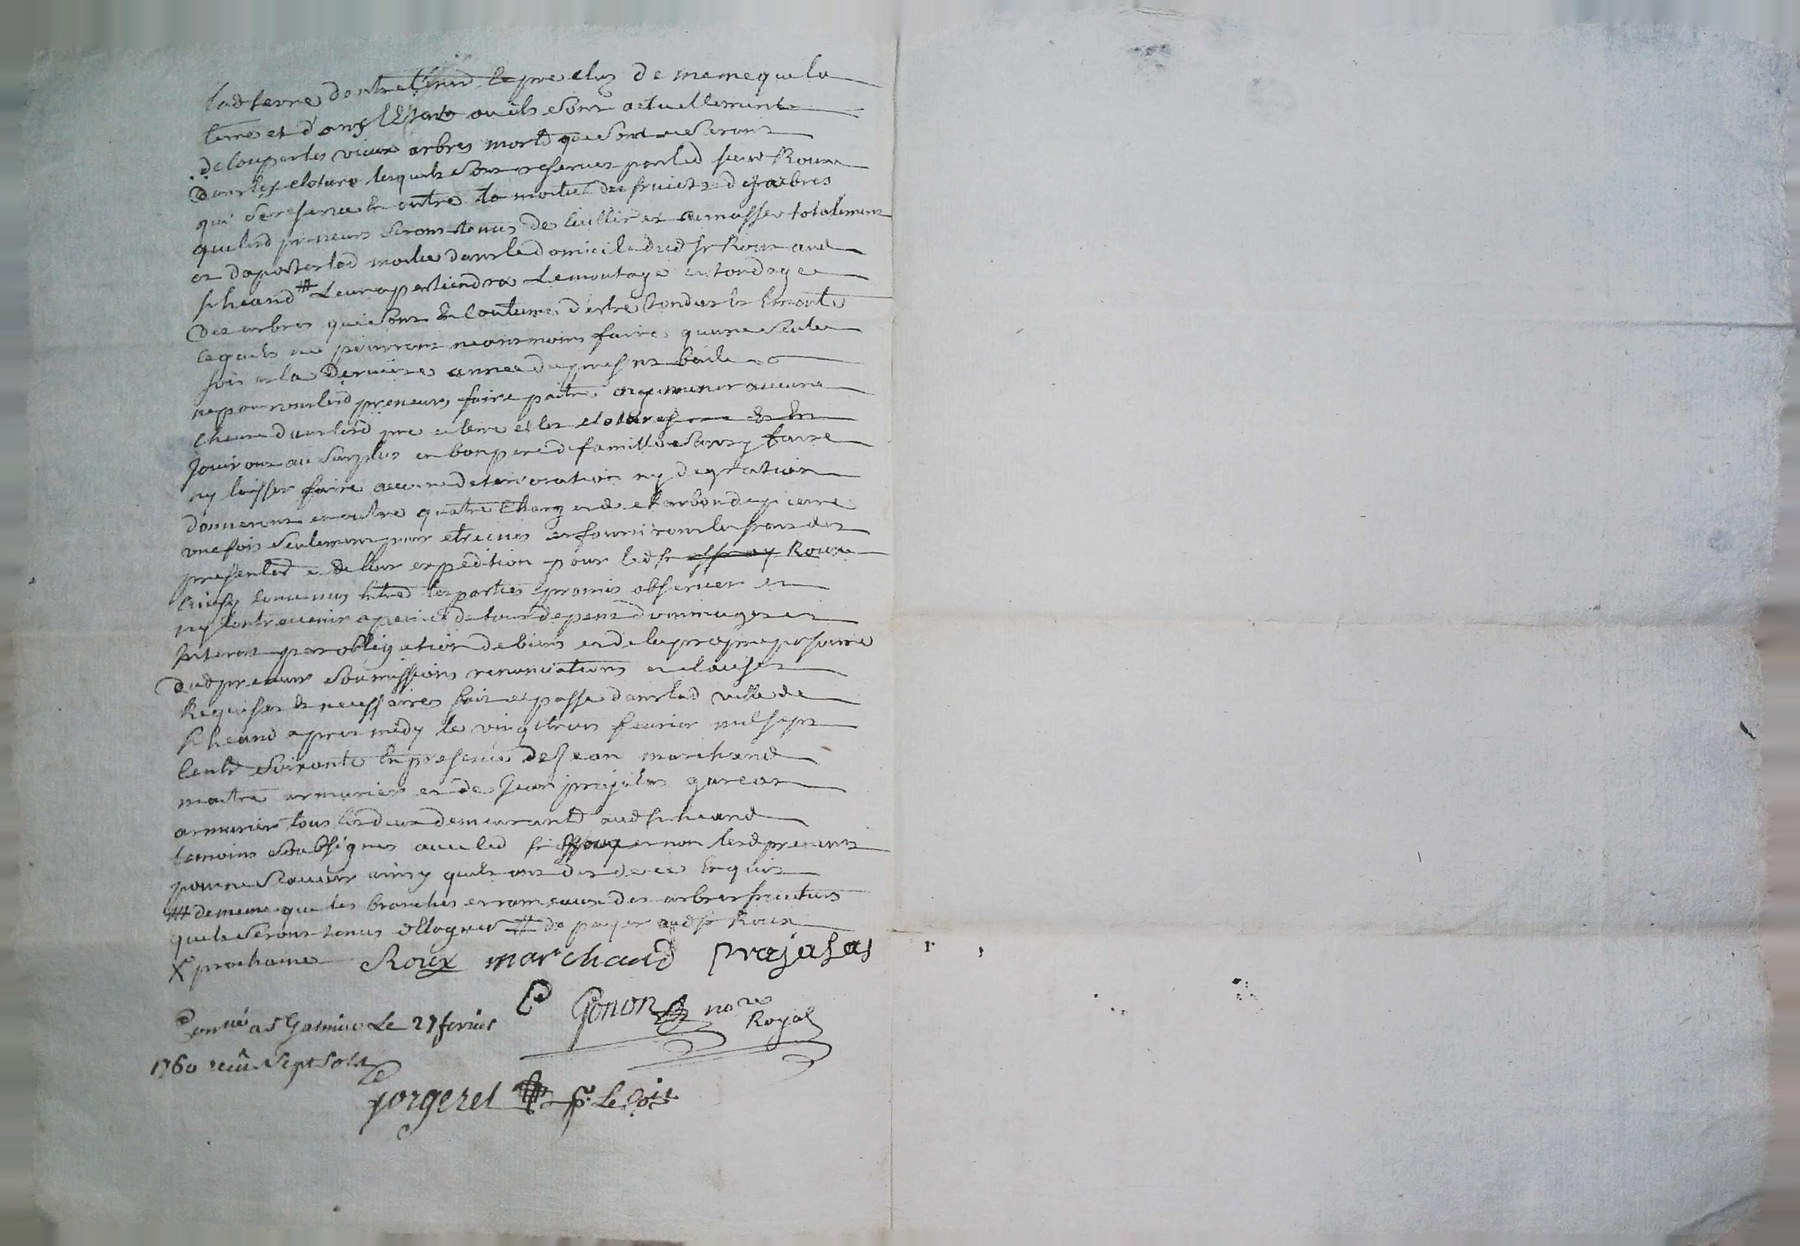 lad terre dentretenir le pre clus de meme que la
terre et d'ans l'Estat ou ils sont actuellement
de couper les vieux arbres morts que sont ou seront
dans les cloture lesquels sont reserves par led sieur Roux
qui se reserve en outre la moitié des fruicts d arbres
que lesd preneurs seront tenus de cuillir et amasser totalement
et daporter lad moitie dans le domicile dud sr Roux aud
st heand # Leur apertiendra Lemontage et tondage
des arbres qui sont en coutume d'estre tondus et Emonte
ce quils ne pourront neantmoins faire quune seule
fois et la derniere annee du present bail
ne pourront lesd preneurs faire paitre ny mener aucune
chevre dans lesd pre et terre et les clotures
Jouiront au surplus en bon pere de famille sans y faire
ny laisser faire aucune deterioration ny degration
donneront en outre quatre charges de charbon de pierre
une fois seulement pour etrennes et fourniront les frais des
presentes et de leur expedition pour led sr Roux
ainsy convenus entre les parties promis observer et
ny contrevenir a peine de tous depens dommages et
Interets par obligation de biens et de la propre personne
dud preneur soumissions renonciations et clauses
Requises et necessaires fait et passe dans lad ville de
st heand apres midy le vingt trois fevrier mil sept
cents soixante En presence de Jean marchand
maitre armurier et de Jean prajalas garçon
armurier tous les deux demeurants aud st heand
temoins soubsignes avec led sr Roux et non lesd preneurs
pour ne scavoir ainsy quils ont dit de ce Enquis
# de meme que les branches et rameaux des arbres fruitiers
quils seront tenus # de payer aud sr Roux
X prochaine Roux marchand Prajalas
Gonon nore
Royal
Connué a St Galmier Le 27 fevrier
1760 recu sept sols
forgeret